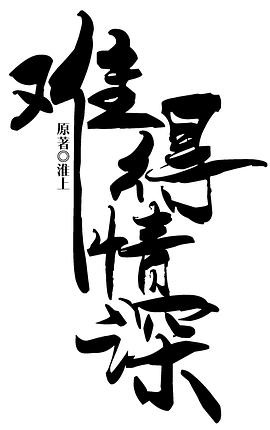 难得情深
原著◎淮上